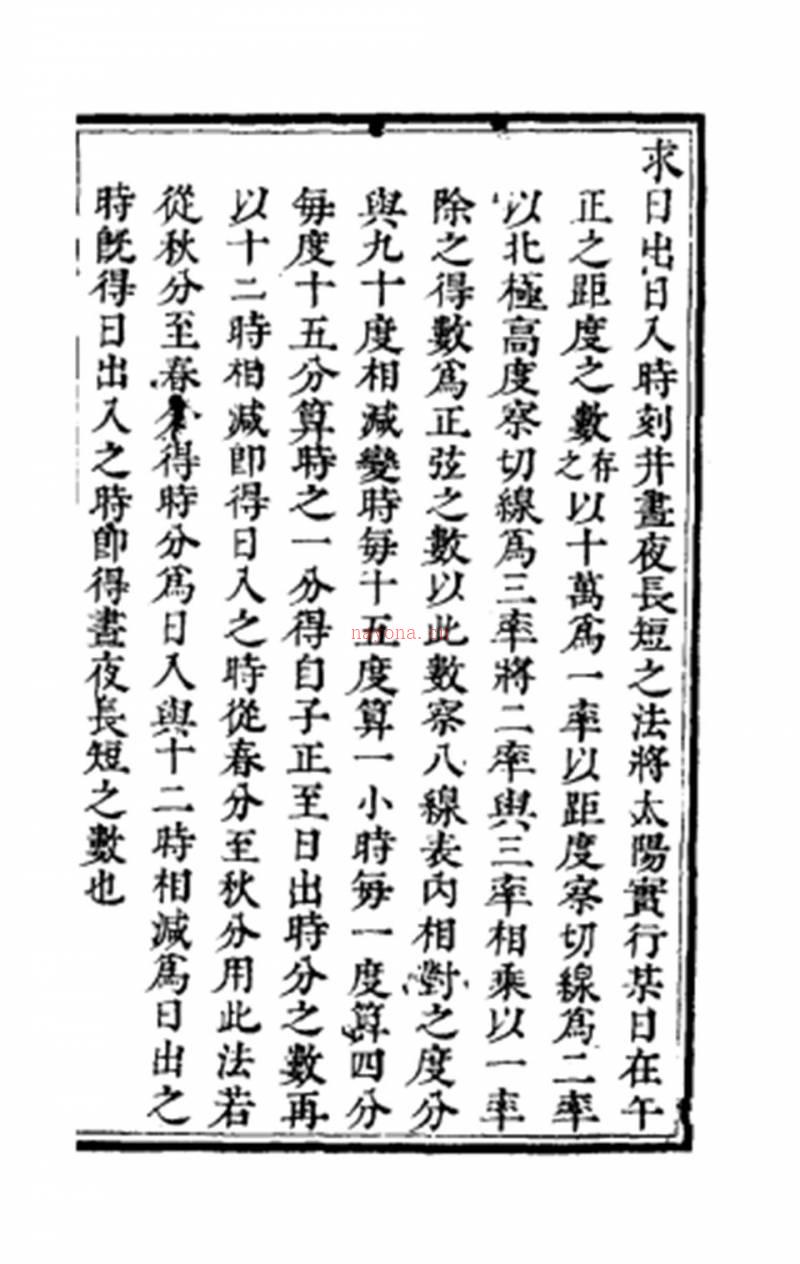 求日出日入時刻并晝夜長短之法將太陽實行某日在午
正之距度之數存之以十萬為一率以距度察切線為二率
以北極高度察切線為三率將二率與三率相乘以一率
除之得數為正弦之數以此數察八線表內相對之度分
與九十度相減變時每十五度算一小時每一度算四分
每度十五分算時之一分得自子正至日出時分之數再
以十二時相減即得日入之時從春分至秋分用此法若
從秋分至春分得時分為日入與十二時相減為日出之
時既得日出入之時即得晝夜長短之數也
nayona.cn